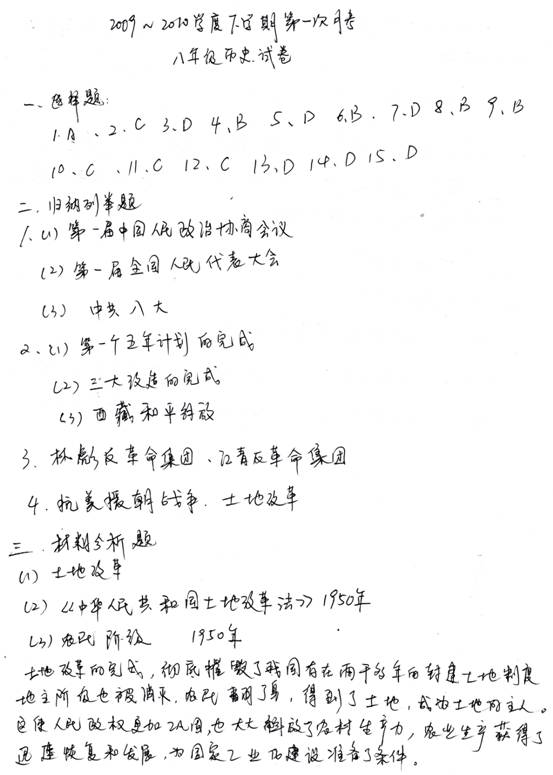 2009～2010学度下学期第一次月考
八年级历史试卷
一、选择题:
1.A、2.C 3.D 4.B 5.D 6.B. 7.D 8.B 9.B
10.C .11.C 12.C 13.D 14.D 15.D
二.归纳列举题
1.(1)第一届中国人民政治协商会议
(2)第一届全国人民代表大会
(3) 中共八大
2.(1)第一个五年计划的完成
(2)三大改造的完成
(3)西藏和平解放
3.林彪反革命集团、江青反革命集团
4.抗美援朝战争.土地改革
三.材料分析题
(1)土地改革
(2)《中华人民共和国土地改革法》1950年
(3)农民阶级 1950年
土地改革的完成,彻底摧毁了我国存在两千多年的封建土地制度
地主阶级也被消灭.农民翻了身,得到了土地,成为土地的主人。
这使人民政权更加巩固,也大大解放了农村生产力,农业生产获得了
迅速恢复和发展,为国家工业化建设准备了条件。